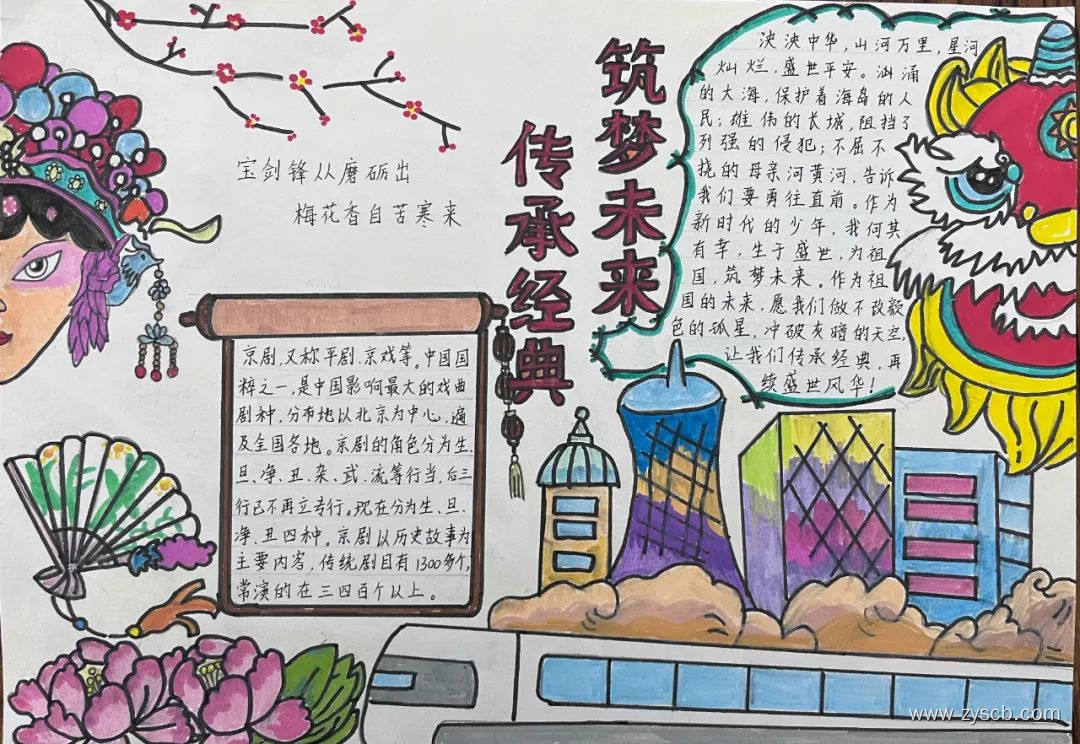 传承经典
筑梦未来
宝剑锋从磨砺出
梅花香自苦寒来
京剧,又称平剧、京戏等。中国国
粹之一,是中国影响最大的戏曲
剧种,分布地以北京为中心,遍
及全国各地。京剧的角色分为生、
旦、净、丑、杂、武、流等行当,后三
行已不再立专行。现在分为生、旦、
净、丑四种。京剧以历史故事为
主要内容,传统剧目有1300多个,
常演的在三四百个以上。
泱泱中华,山河万里,星河
灿烂,盛世平安。汹涌
的大海,保护着海岛的人
民;雄伟的长城,阻挡了
列强的侵犯;不屈不
挠的母亲河黄河,告诉
我们要勇往直前。作为
新时代的少年,我何其
有幸,生于盛世,为祖
国,筑梦未来。作为祖
国的未来,愿我们做不改毅
色的孤星,冲破灰暗的天空,
让我们传承经典,再
续盛世风华!
www.zyscb.com